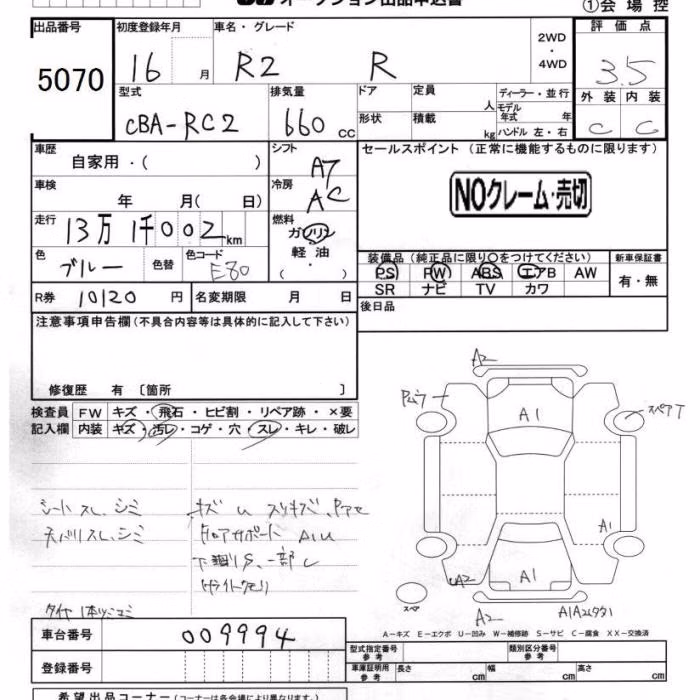 オークション出品申込書
①会場控
出品番号 初度登録年月 車名・グレード 評価点
5070 16 月 R2 R 2WD・4WD 3.5
型式 排気量 ドア 定員 人 ディーラー・並行 外装 内装
CBA-RC2 660 CC 形状 積載 kg モデル年式 年 ハンドル 左・右 C C
車歴 自家用・( ) シフト A7 セールスポイント (正常に機能するものに限ります)
車検 年 月( 日) 冷房 AC NOクレーム・売切
走行 13万1千002km 燃料 ガソリン 軽油・( )
色 ブルー 色替 色コード E80
装備品(純正品に限り○をつけてください) 新車保証書
PS PW ABS エアB AW 有・無
SR ナビ TV カワ
R券 10120 円 名変期限 月 日 後日品
注意事項申告欄(不具合内容等は具体的に記入して下さい)
修復歴 有 〔箇所 〕
検査員 FW キズ・飛石・ヒビ割・リペア跡・×要
記入欄 内装 キズ・汚レ・コゲ・穴・スレ・キレ・破レ
A2
A1
スペアT
シートスレ、シミ
天バリスレ、シミ
キズ U スリキズ、
A1U
下廻りS、一部C
ライトクモリ
A1
A2 A1
スペア
A2
タイヤ1本
A-キズ E-エクボ U-凹み W-補修跡 S-サビ C-腐食 XX-交換済
車台番号 009994
登録番号
型式指定番号 参考 類別区分番号 参考
車庫証明用 参考 長さ cm 幅 cm 高さ cm
希望出品コーナー(コーナーは各会場により異なります。)